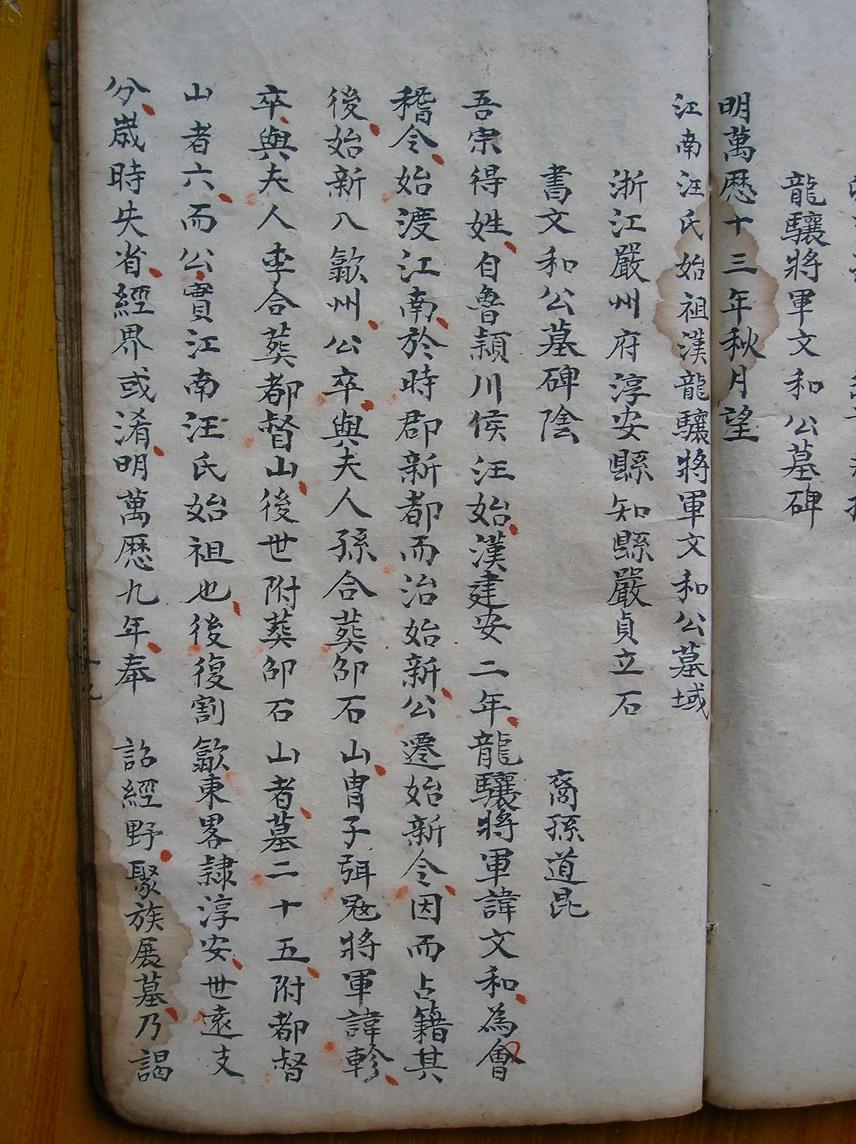 龍驤將軍文和公墓碑
明萬歷十三年秋月望
江南汪氏始祖漢龍驤將軍文和公墓域
浙江嚴州府淳安縣知縣嚴貞立石
書文和公墓碑陰 裔孫道昆
吾宗得姓自魯頴川侯汪始漢建安二年龍驤將軍諱文和為會
稽令始渡江南於時郡新都而治始新公遷始新令因而占籍其
後始新入歙州公卒與夫人孫合葬卹石山胄子弭冦將軍諱軫
卒與夫人李合葬都督山後世附葬卹石山者墓二十五附都督
山者六而公實江南汪氏始祖也後復割歙東畧隸淳安世遠支
分嵗時失省經界或淆明萬歷九年奉 詔經野聚族展墓乃謁